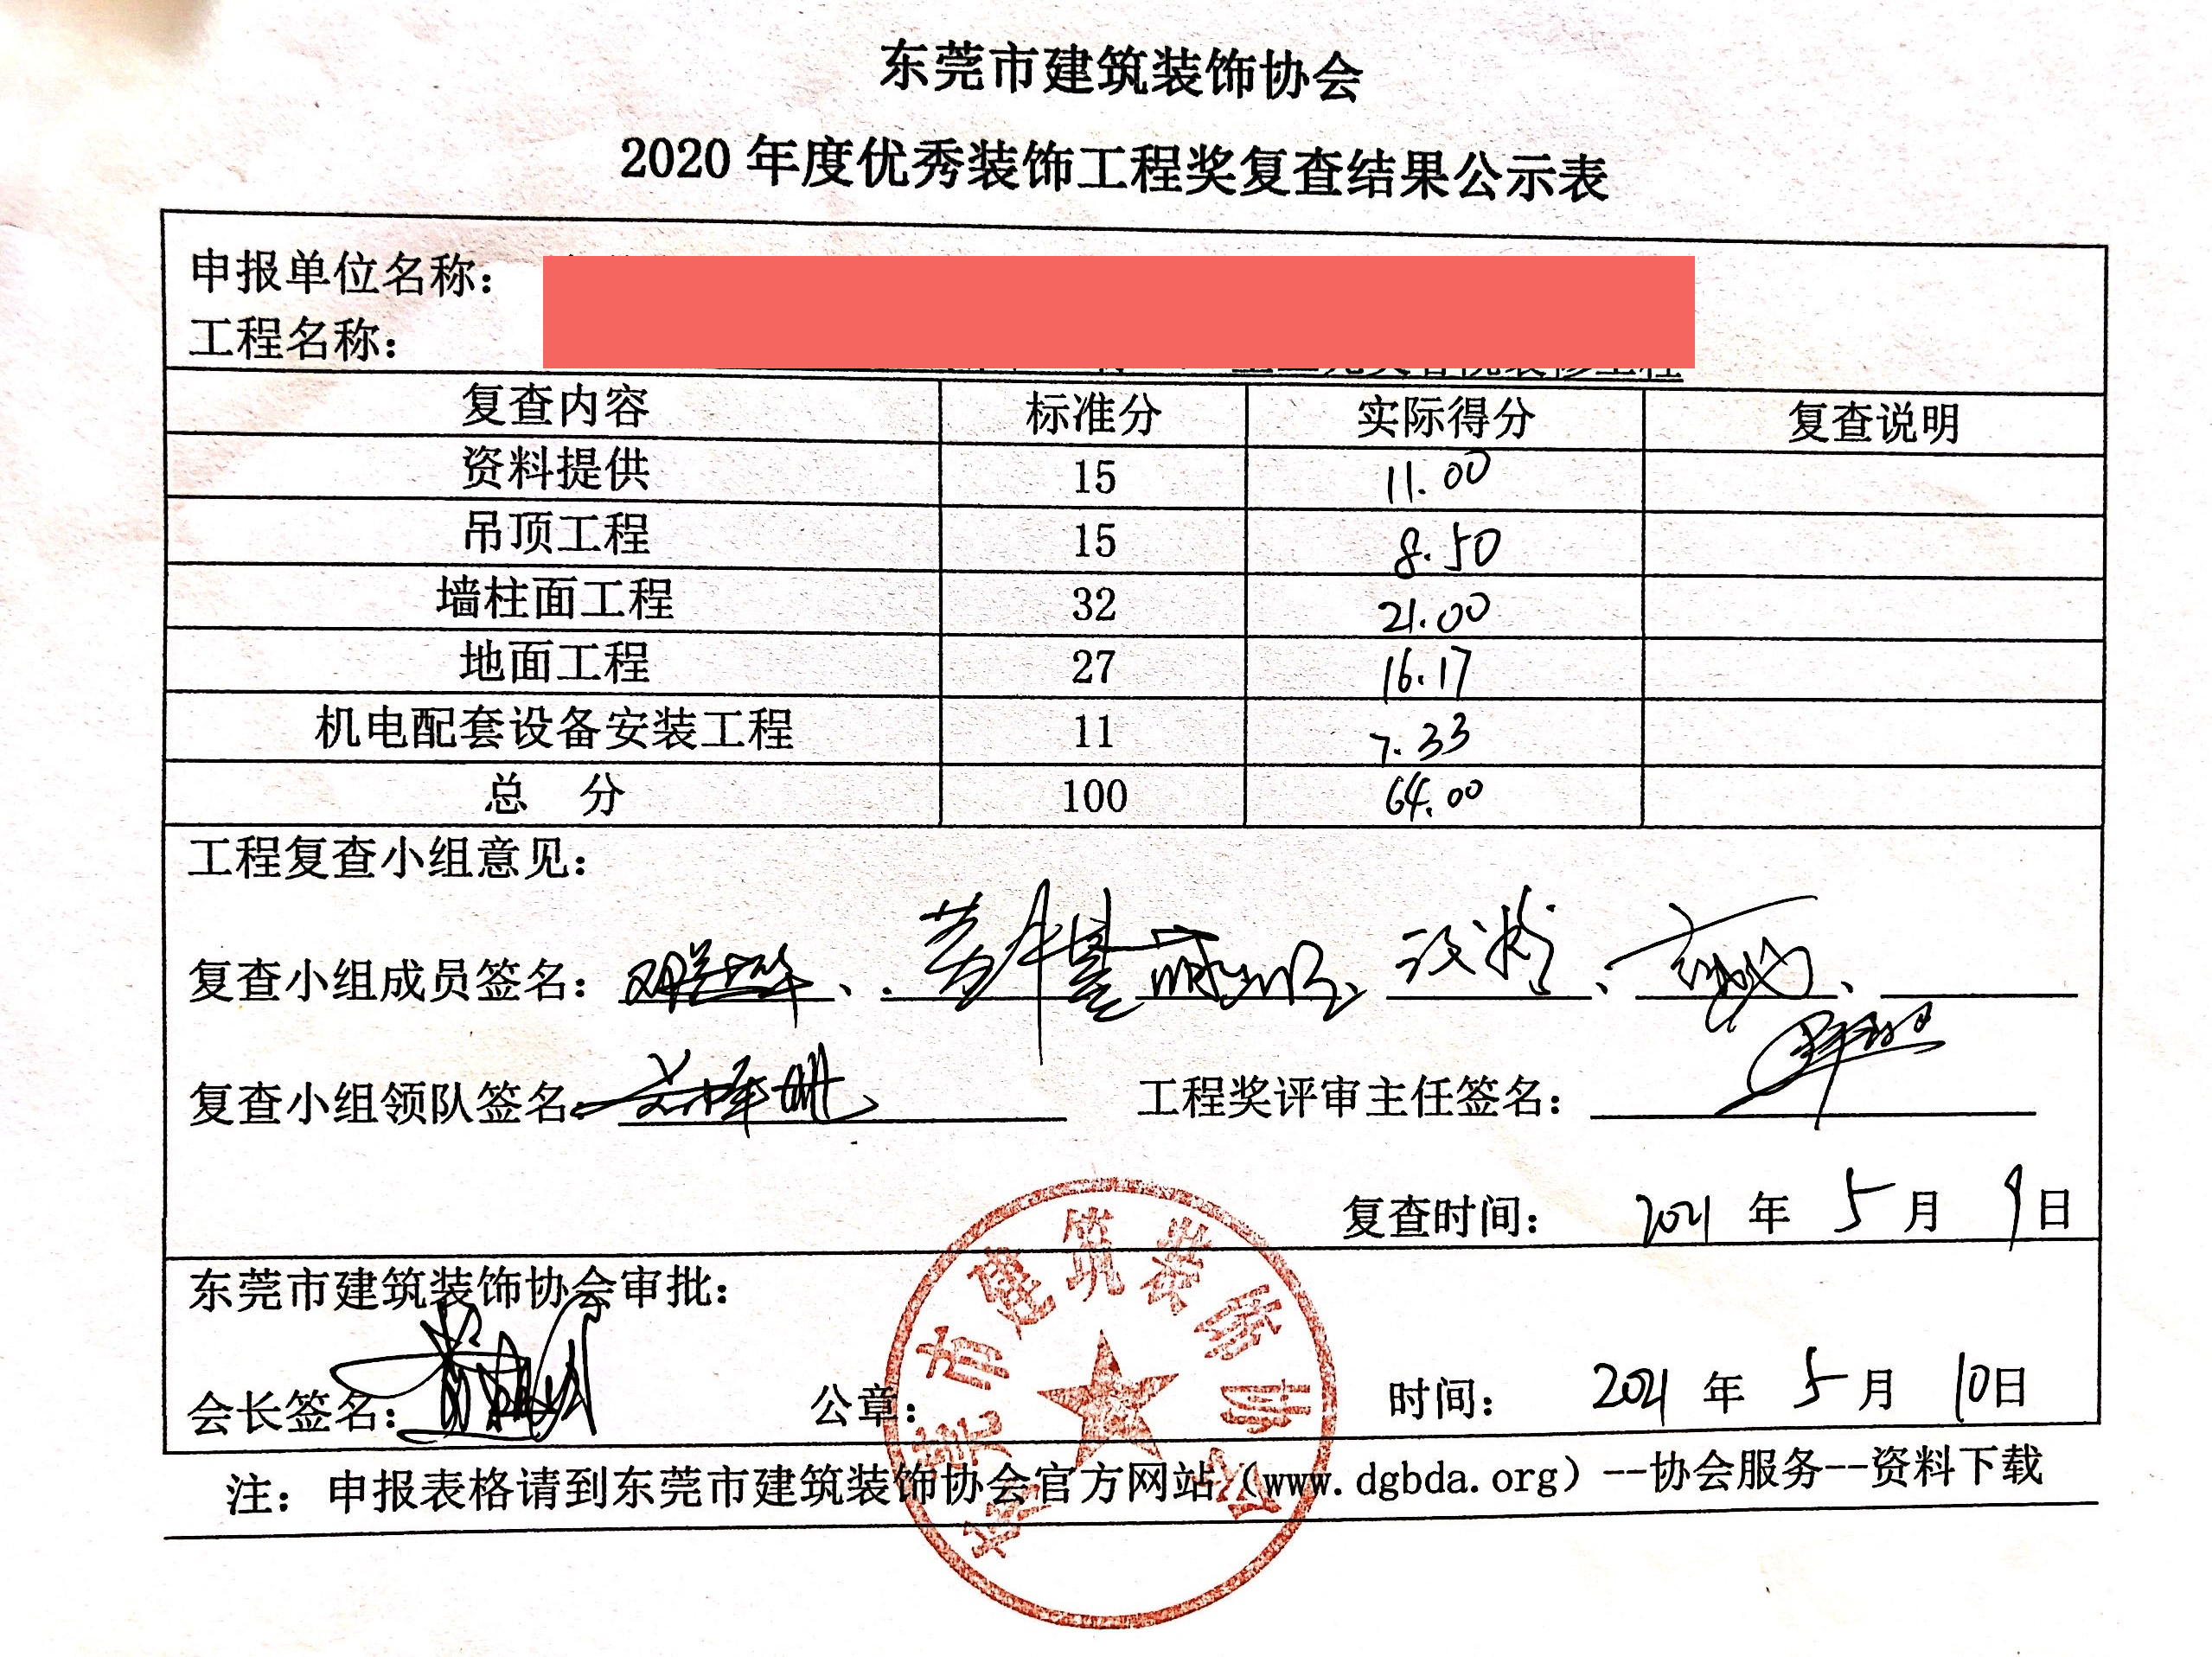 东莞市建筑装饰协会
2020 年度优秀装饰工程奖复查结果公示表
申报单位名称：
工程名称：
复查内容 标准分 实际得分 复查说明
资料提供 15 11.00
吊顶工程 15 8.50
墙柱面工程 32 21.00
地面工程 27 16.17
机电配套设备安装工程 11 7.33
总 分 100 64.00
工程复查小组意见：
复查小组成员签名：
复查小组领队签名： 工程奖评审主任签名：
复查时间： 2021 年 5 月 9日
东莞市建筑装饰协会审批：
会长签名： 公章： 时间： 2021 年 5 月 10日
注：申报表格请到东莞市建筑装饰协会官方网站（www.dgbda.org）--协会服务--资料下载